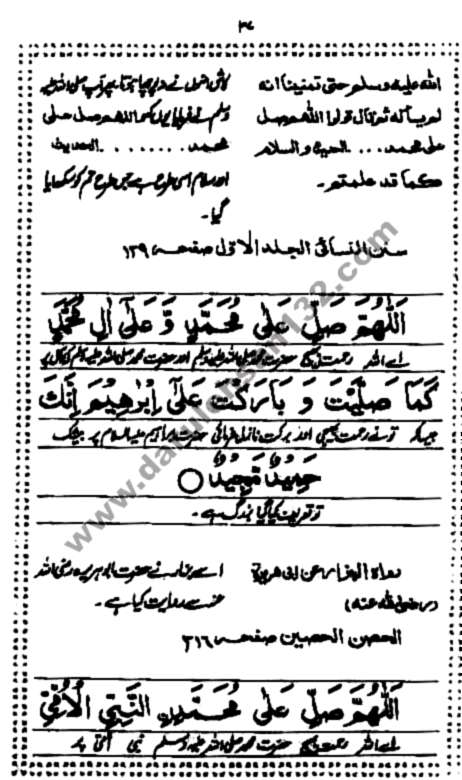 ۳۶
الله علیه وسلم حتی تمنینا انه
لم یسأله ثم قال قولوا اللهم صل
علی محمد.... الحدیث والسلام
کما قد علمتم۔
کاش انہوں نے نہ پوچھا ہوتا، پھر آپ صلی اللہ علیہ
وسلم نے فرمایا یوں کہو اللهم صل علی
محمد ........ الحدیث
اور سلام اسی طرح ہے جس طرح تم کو سکھایا
گیا۔
سنن النسائی الجلد الاول صفحہ ۱۳۹
اَللّٰهُمَّ صَلِّ عَلٰى مُحَمَّدٍ وَّ عَلٰٓى اٰلِ مُحَمَّدٍ
اے اللہ رحمت بھیج حضرت محمد صلی اللہ علیہ وسلم اور حضرت محمد صلی اللہ علیہ وسلم کی آل پر
كَمَا صَلَّيْتَ وَ بَارَكْتَ عَلٰٓى اِبْرٰهِيْمَ اِنَّكَ
جیسا کہ تو نے رحمت بھیجی اور برکت نازل فرمائی حضرت ابراہیم علیہ السلام پر بیشک
حَمِيْدٌ مَّجِيْدٌ
تو تعریف کیا گیا بزرگ ہے۔
رواه البزار عن ابی هریرة
(رضی الله عنه)
اسے بزار نے حضرت ابو ہریرہ رضی اللہ
عنہ سے روایت کیا ہے۔
الحصن الحصین صفحہ ۳۱۶
اَللّٰهُمَّ صَلِّ عَلٰى مُحَمَّدِ نِ النَّبِيِّ الْاُمِّيِّ
اے اللہ رحمت بھیج حضرت محمد صلی اللہ علیہ وسلم نبی امی پر
www.darulehsan132.com